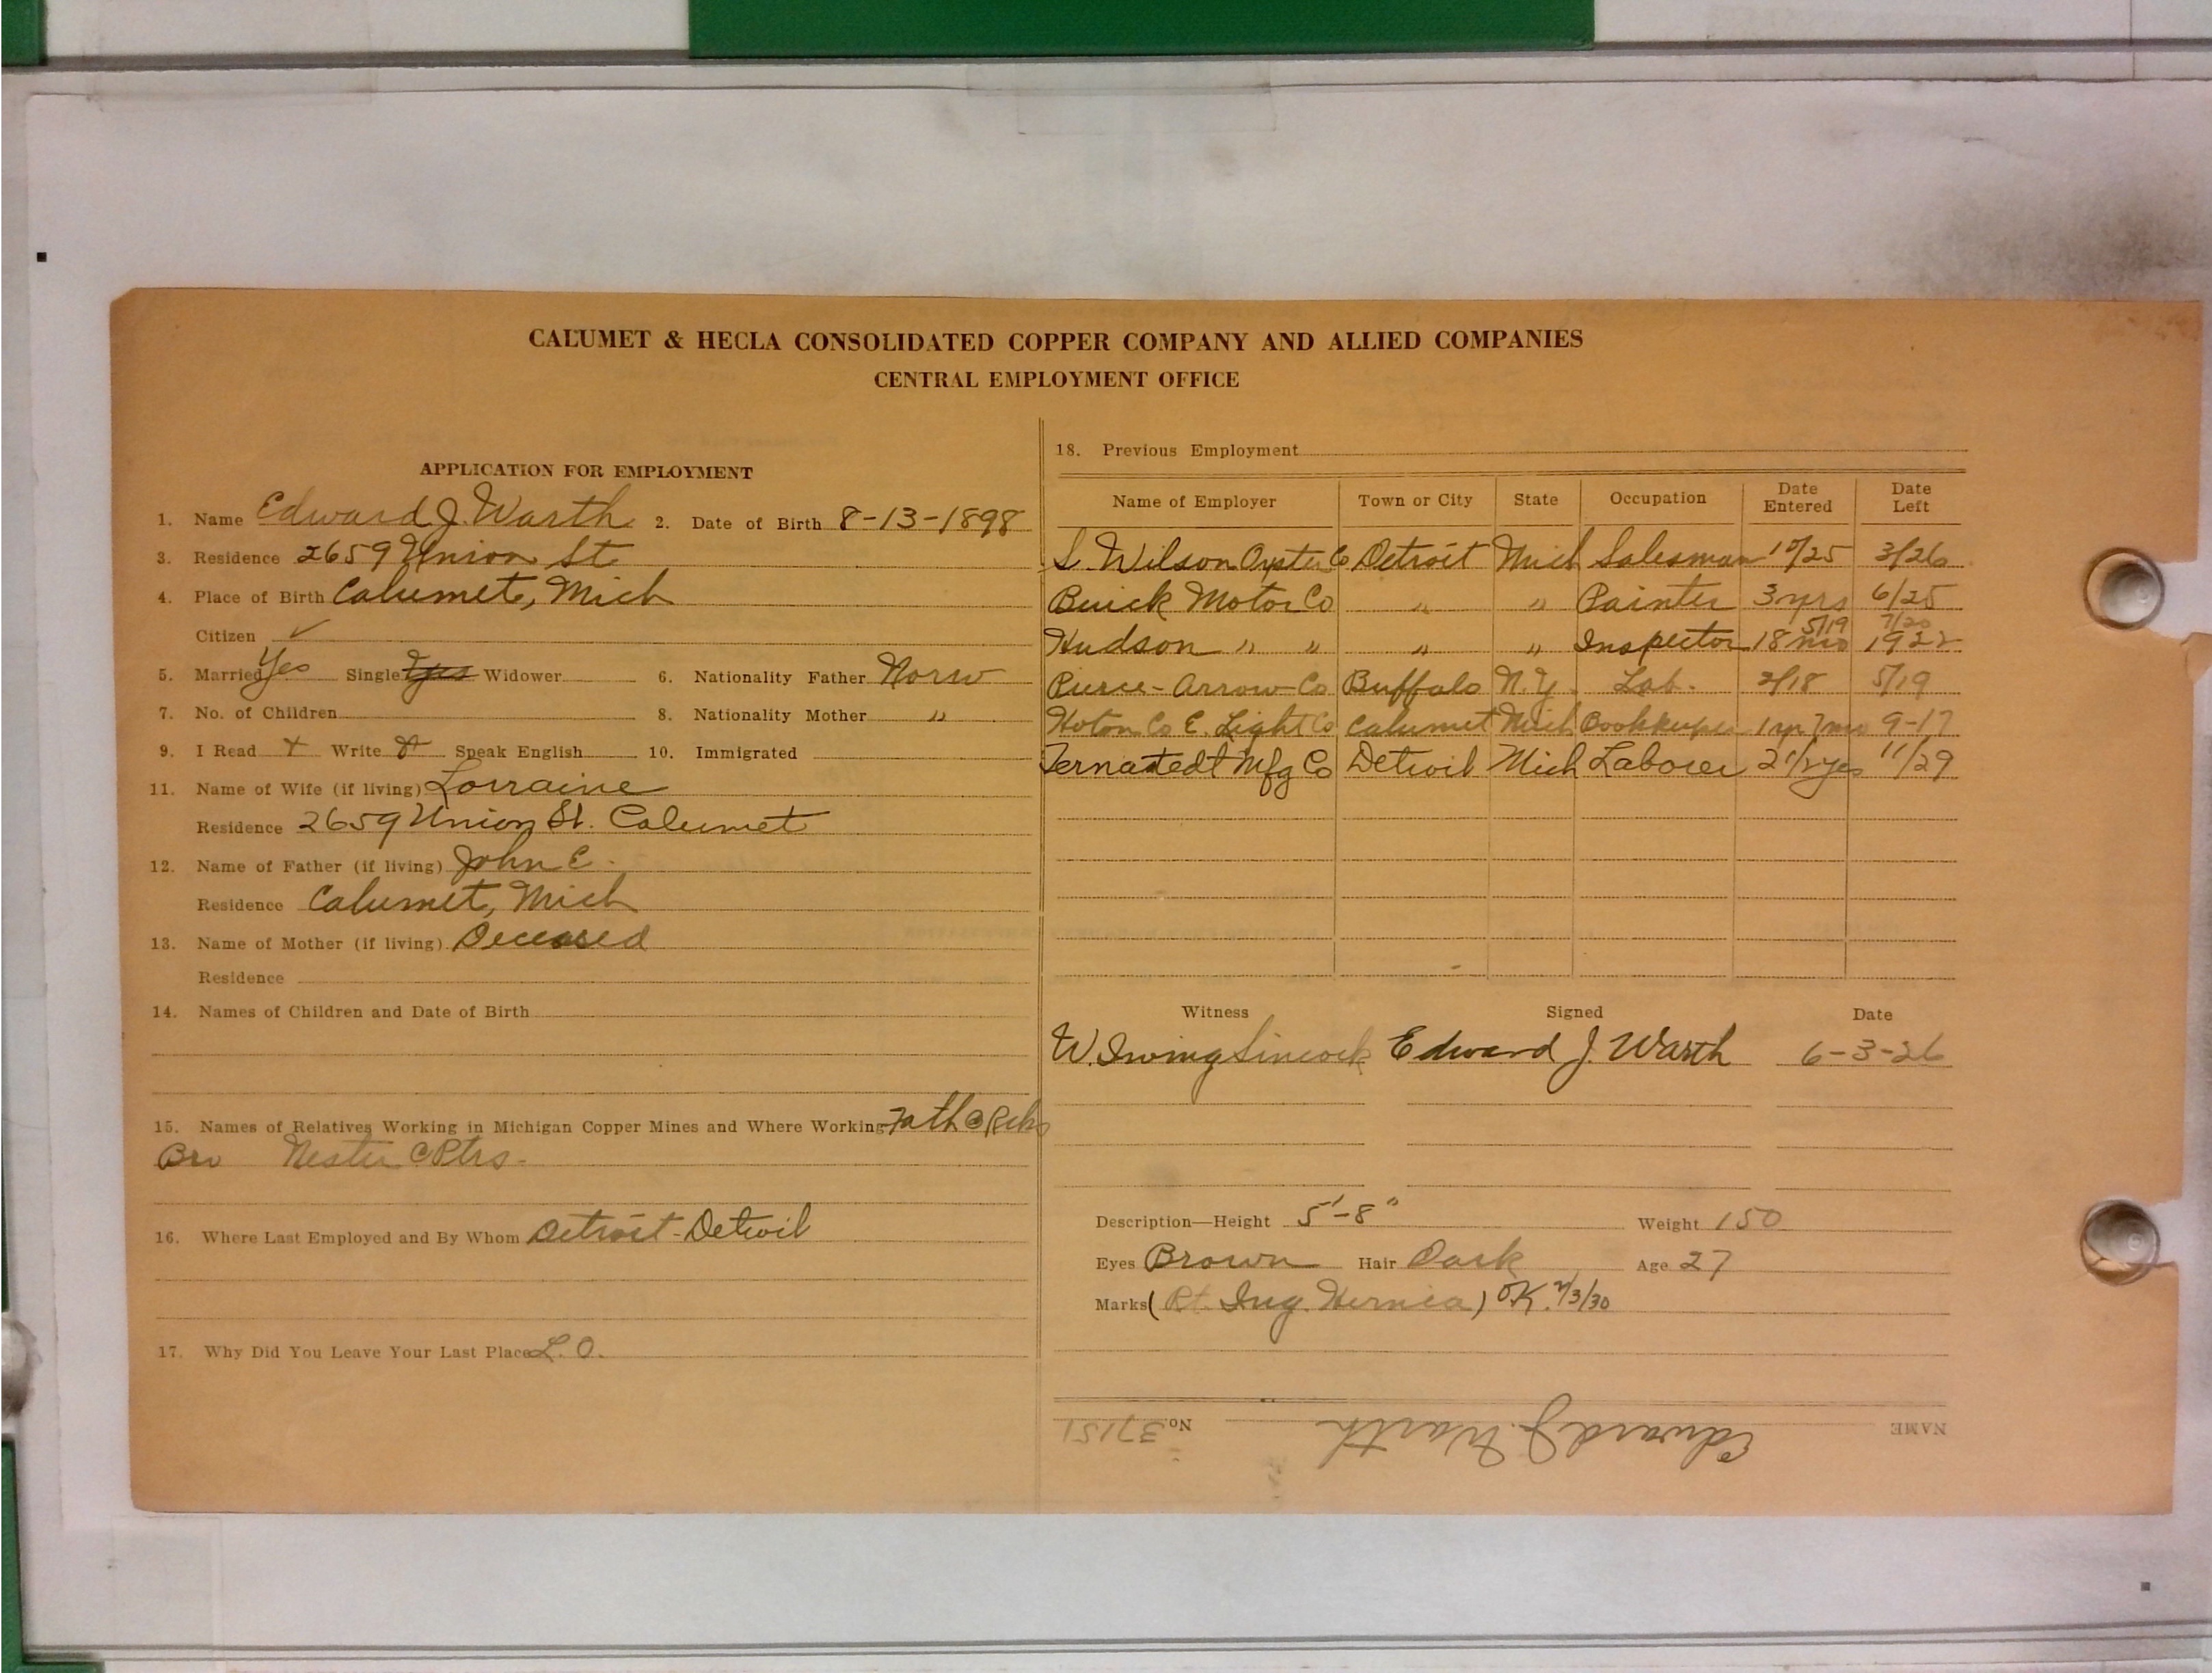 CALUMET & HECLA CONSOLIDATED COPPER COMPANY AND ALLIED COMPANIES
CENTRAL EMPLOYMENT OFFICE
APPLICATION FOR EMPLOYMENT
1. Name Edward J. Warth 2. Date of Birth 8-13-1898
3. Residence 2659 Union St
4. Place of Birth Calumet, Mich
Citizen ✓
5. Married Yes Single Yes Widower 6. Nationality Father Norw
7. No. of Children 8. Nationality Mother "
9. I Read Write Speak English 10. Immigrated
11. Name of Wife (if living) Lorraine
Residence 2659 Union St. Calumet
12. Name of Father (if living) John E.
Residence Calumet, Mich
13. Name of Mother (if living) Deceased
Residence
14. Names of Children and Date of Birth
15. Names of Relatives Working in Michigan Copper Mines and Where Working Fath
Bro
16. Where Last Employed and By Whom Detroit - Detroit
17. Why Did You Leave Your Last Place L. O.
18. Previous Employment
Name of Employer Town or City State Occupation Date Entered Date Left
S. Wilson Oyster Co Detroit Mich Salesman 10/25 3/26
Buick Motor Co " " Painter 3 yrs 6/25
5/19 7/20
Hudson " " " " Inspector 18 mo 1922
Pierce-Arrow Co Buffalo N.Y. Lab. 2/18 5/19
Hoton Co E. Light Co Calumet Mich Bookkeeper 1 yr 7 mo 9-17
Ternstedt Mfg Co Detroit Mich Laborer 2 1/2 yrs 11/29
Witness Signed Date
W. Irving Sincock Edward J. Warth 6-3-26
Description—Height 5'-8" Weight 150
Eyes Brown Hair Dark Age 27
Marks (Rt. Ing. Hernia) OK. 2/3/30
NAME Edward J. Warth No. 37151